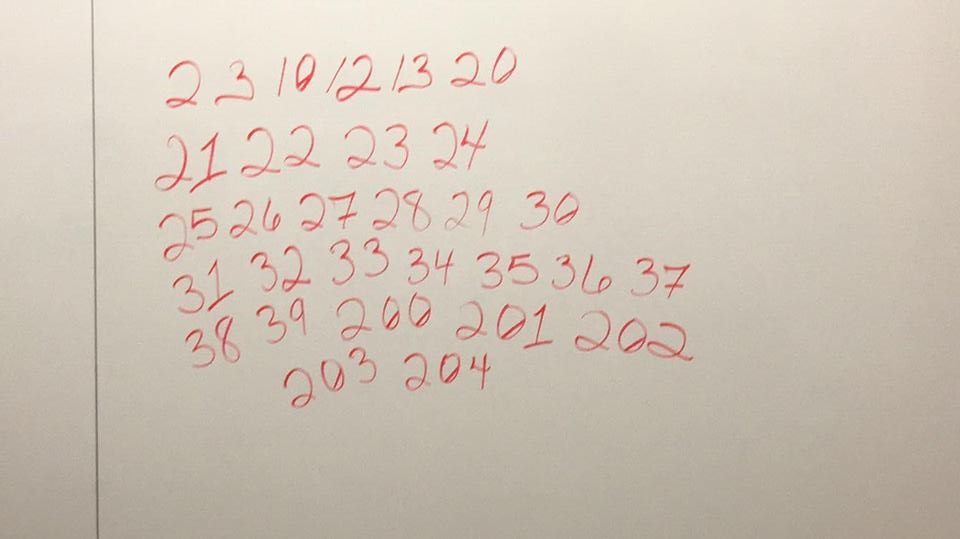 2 3 10 12 13 20
21 22 23 24
25 26 27 28 29 30
31 32 33 34 35 36 37
38 39 200 201 202
203 204